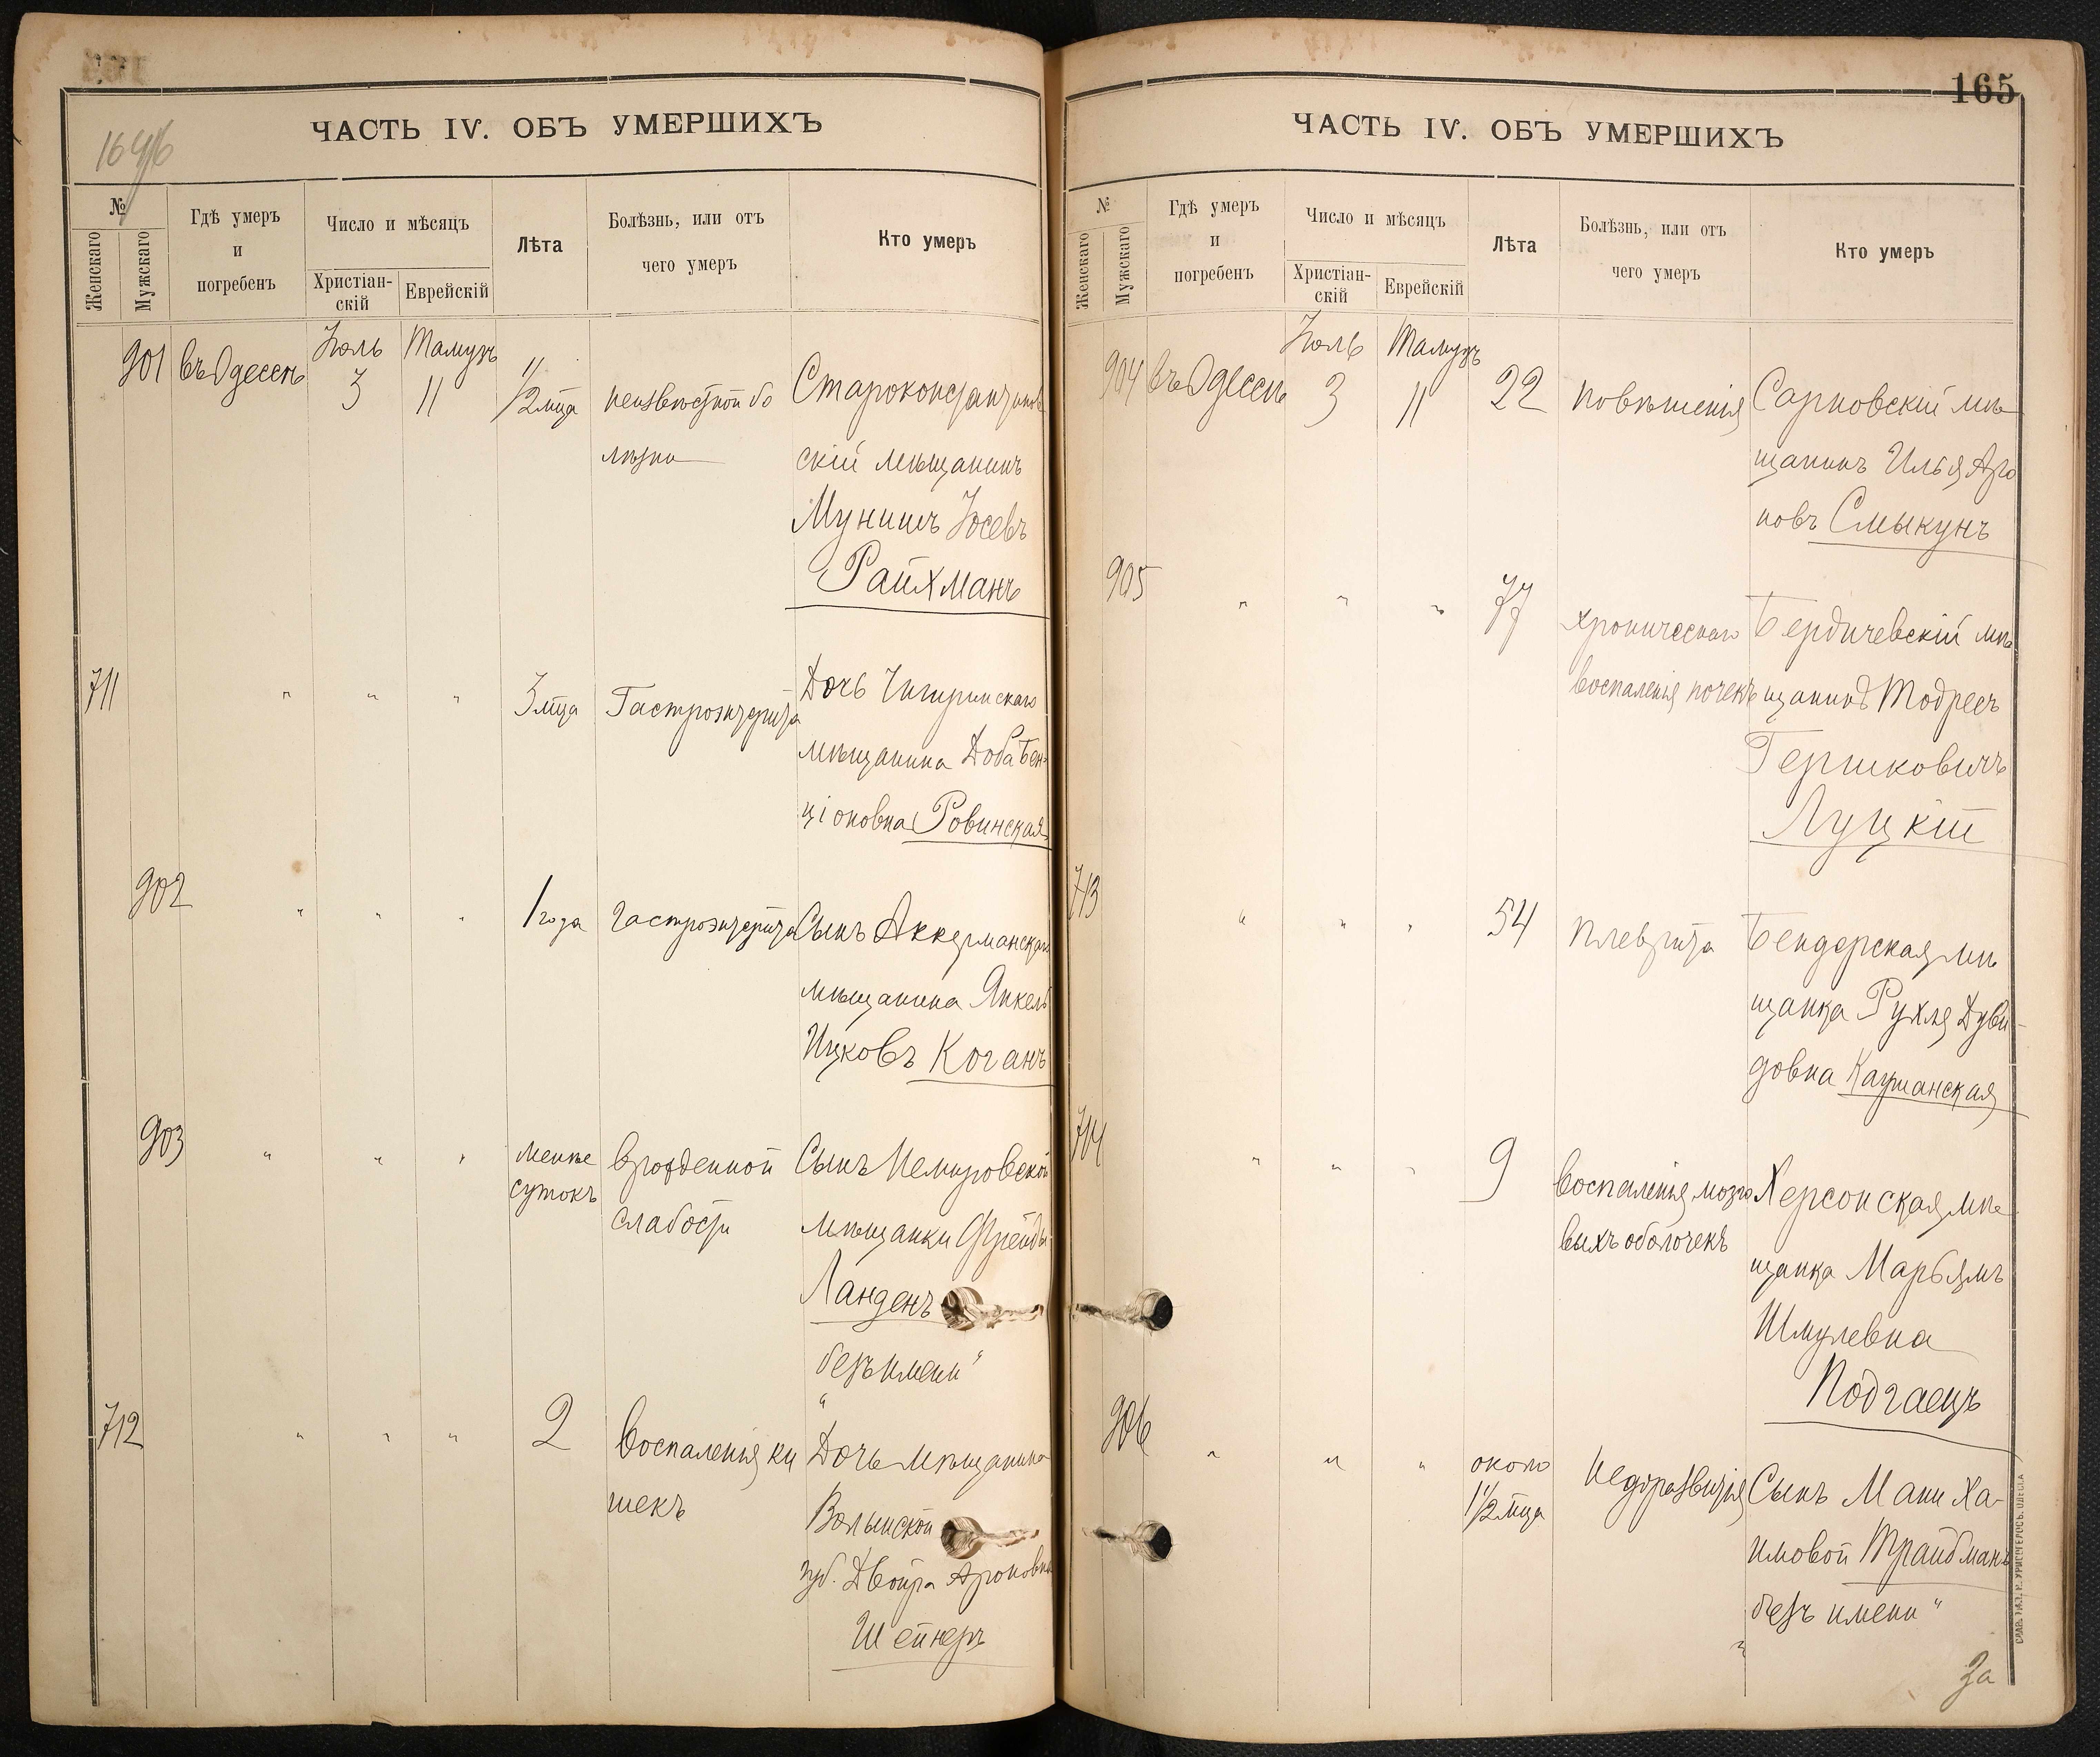 ЧАСТЬ IV. ОБЪ УМЕРШИХЪ
№
Женскаго
Мужскаго
Гдѣ умеръ
и
погребенъ
Число и мѣсяцъ
Христіан-
скій
Еврейскій
Лѣта
Болѣзнь, или отъ
чего умеръ
Кто умеръ
901 въ Одессѣ Іюль 3 Тамузъ 11 1/2 мца неизвѣстной бо
лѣзни
Староконстантинов
скій мѣщанинъ
Мунишъ Іосевъ
Райхманъ
711 " " " 3 мца Гастроэнтерита
Дочь Чигиринскаго
мѣщанина Доба Бен-
ціоновна Ровинская
902 " " " 1 года гастроэнтерита
Сынъ Аккерманскаго
мѣщанина Янкель
Ицковъ Коганъ
903 " " " менѣе
сутокъ
врожденной
слабости
Сынъ Немировской
мѣщанки Фрейды
Ланденъ
безъ имени"
712 " " " 2 Воспаленія ки
шекъ
Дочь мѣщанина
Волынской
губ. Двойра Ароновна
Шейнеръ
165
ЧАСТЬ IV. ОБЪ УМЕРШИХЪ
№
Женскаго
Мужскаго
Гдѣ умеръ
и
погребенъ
Число и мѣсяцъ
Христіан-
скій
Еврейскій
Лѣта
Болѣзнь, или отъ
чего умеръ
Кто умеръ
904 въ Одессѣ Іюль 3 Тамузъ 11 22 повѣшенія
Сарновскій мѣ
щанинъ Илья Аро
новъ Смыкунъ
905 " " " 77 хроническаго
воспаленія почекъ
Бердичевскій мѣ
щанинъ Тодресъ
Гершковичъ
Луцкій
713 " " " 54 плеврита
Бендерская мѣ
щанка Рухля Дуви-
довна Каушанская
714 " " " 9 воспаленія мозго
выхъ оболочекъ
Херсонская мѣ
щанка Марьямъ
Шмулевна
Подгаецъ
906 " " " около
1 1/2 мца
недоразвитія
Сынъ Мани Ха-
имовой Трайдманъ
безъ имени"
За